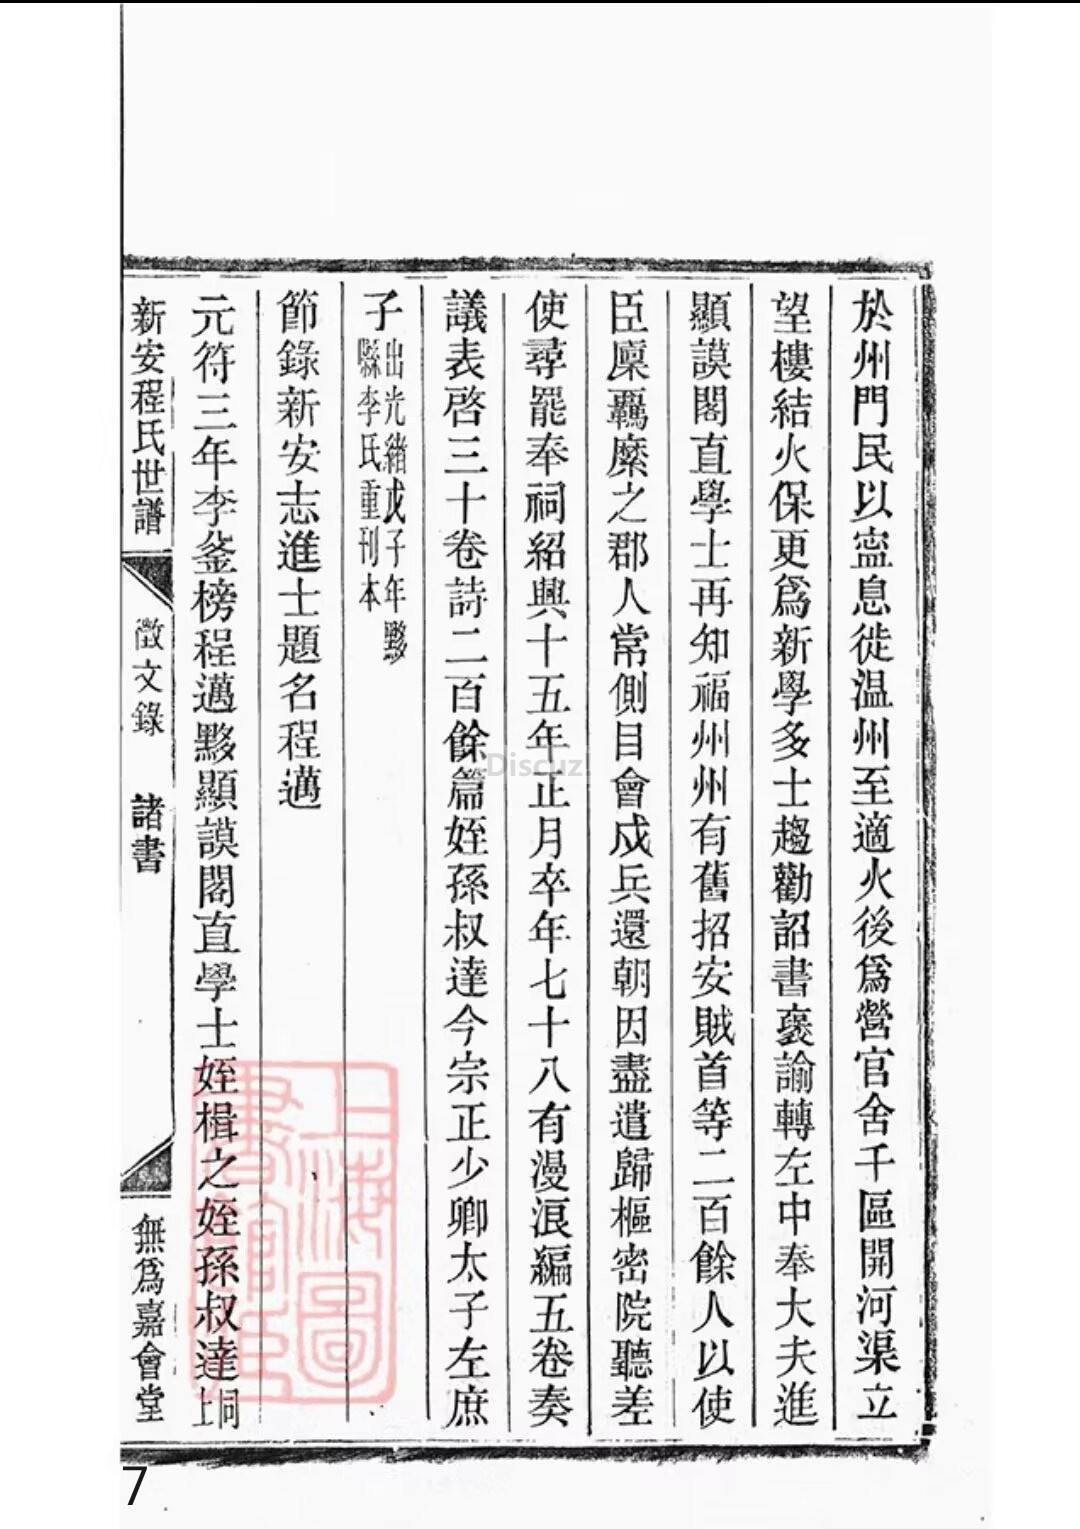 於州門民以寍息徙温州至適火後爲營官舍千區開河渠立
望樓結火保更爲新學多士趨勸詔書褒諭轉左中奉大夫進
顯謨閣直學士再知福州州有舊招安賊首等二百餘人以使
臣廩羈縻之郡人常側目會戍兵還朝因盡遣歸樞密院聽差
使尋罷奉祠紹興十五年正月卒年七十八有漫浪編五卷奏
議表啓三十卷詩二百餘篇姪孫叔達今宗正少卿太子左庶
子
出光緒戊子年黟
縣李氏重刊本
節錄新安志進士題名程邁
元符三年李釜榜程邁黟顯謨閣直學士姪楫之姪孫叔達
同
上
新安程氏世譜
徵文錄
諸書
無爲嘉會堂
上海圖
書館藏
Discuz!
7